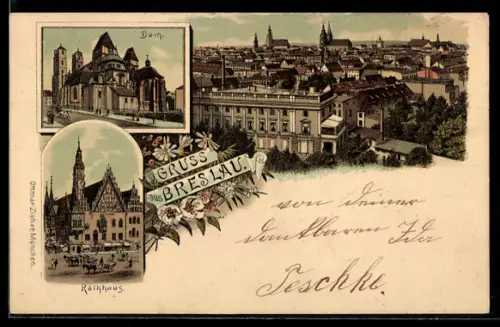 Dom.
GRUSS
aus BRESLAU
Rathhaus.
Ottmar Zieher, München.
von deiner
dankbaren Ida
Teschke.